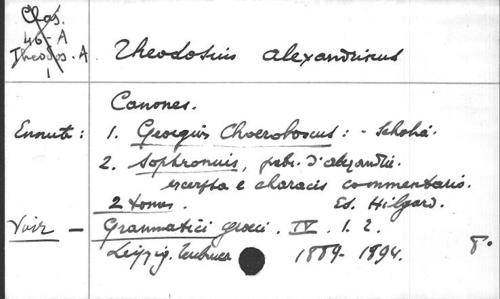 Clas.
46-A
Theodos. A
1
Theodosius alexandrinus
Canones.
Ensuite : 1. Georgius Choeroboscus : - Scholia.
2. Sophronius, patr. d'alexandrie.
excerpta e characis commentario.
2 tomes. Ed. Hilgard.
Voir - Grammatici graeci. IV. 1. 2.
Leipzig. Teubner 1889-1894. 8.